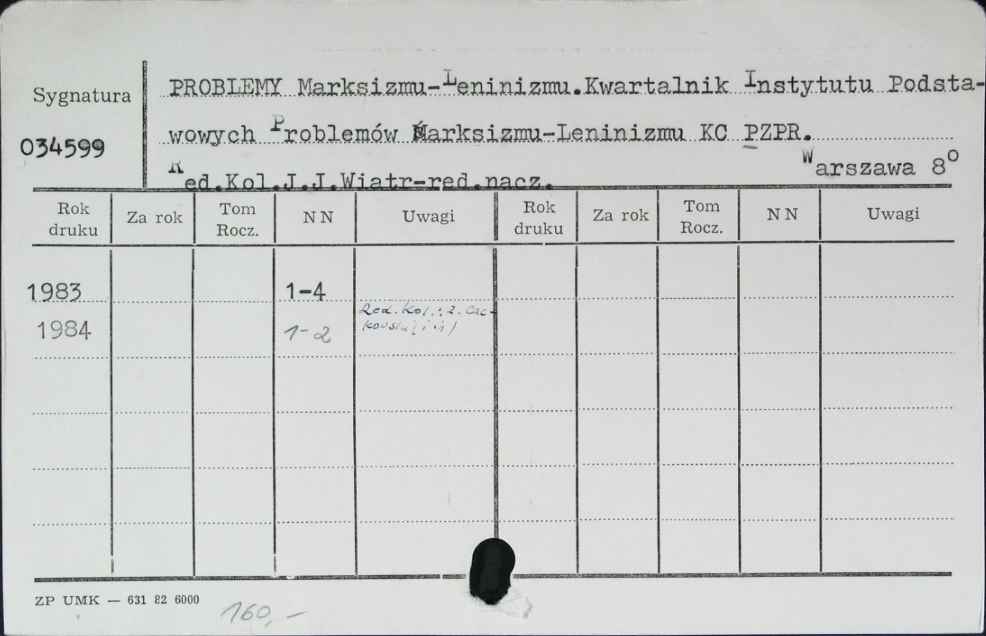 Sygnatura
034599
PROBLEMY Marksizmu-Leninizmu.Kwartalnik Instytutu Podsta-
wowych Problemów Marksizmu-Leninizmu KC PZPR.
Warszawa 8°
Red.Kol.J.J.Wiatr-red.nacz.
Rok druku Za rok Tom Rocz. NN Uwagi Rok druku Za rok Tom Rocz. NN Uwagi
1983 1-4
Red. Kol.
1984 1-2
ZP UMK — 631 82 6000
160,-